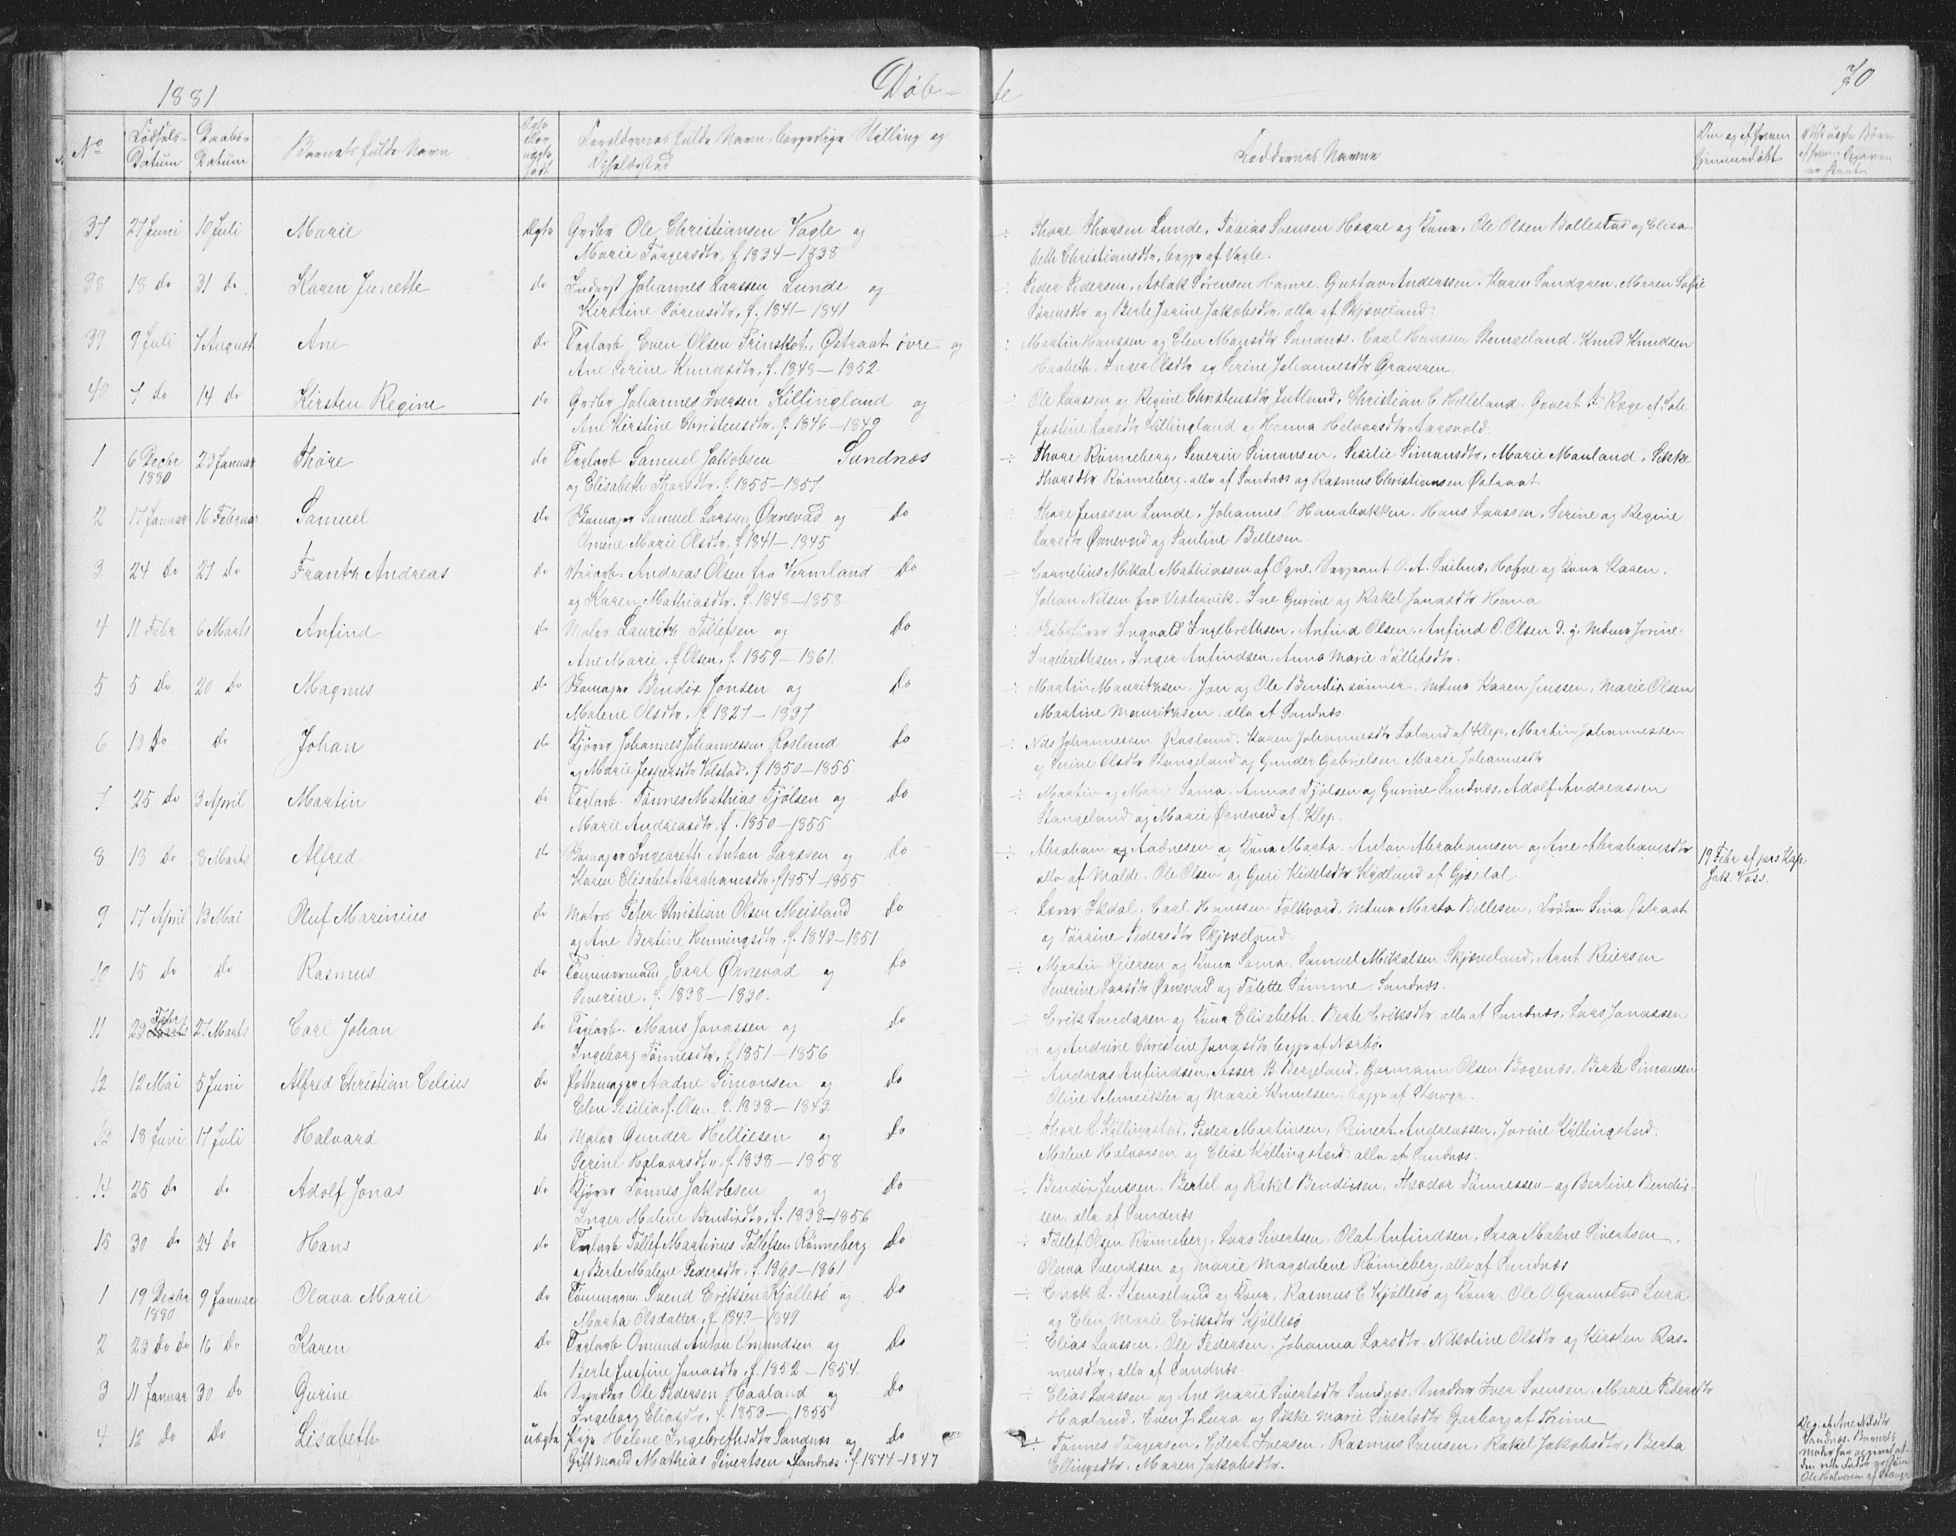 1881
Døb-
te
70
No
Fødsels-
Datum
Daabs-
Datum
Barnets fulde Navn
Forældrenes fulde Navn, borgerlige Stilling og
Faddernes Navne
37 27 Juni 10 Juli Marie Ægte Grdbr Ole Christiansen Vagle og
Marie Torgersdtr, f. 1834-1838
÷ Thore Thorsen Lunde, Tobias Svensen Høgne og Kone, Ole Olsen Bollestad og Elisa-
beth Christiansdtr, begge af Vagle.
38 18 do 31 do Karen Juliette do Inderst Johannes Larssen Lunde og
Kirstine Sørensdtr, f. 1841-1841
÷ Peder Pedersen, Aslak Sørensen Hamre, Gustav Anderssen, Karen Sandgren, Maren Sofie
Sørensdtr og Berte Jorine Jakobsdtr, alle af Skjæveland.
39 9 Juli 7 August Ane do Teglarb Even Olsen Østraat øvre og
Ane Serine Knudsdtr, f. 1848-1852.
÷ Martin Hanssen og Elen Mansdtr Sandnæs. Carl Hanssen Stangeland, Knud Knudsen
Inger Olsdtr og Serine Johannesdtr Graveren.
40 7 do 14 do Kirsten Regine do Grdbr Johannes Iversen Killingland og
Ane Kirstine Christensdtr, f. 1846-1849
÷ Ole Larssen og Regine Christensdtr Jutland, Christian C. Helleland. Govert F. Ræge af Sole
Justine Larsdtr Killingland og Hanna Halvorsdtr Aarsvold.
1 6 Decbr 23 Januar Thore do Teglarb Samuel Jakobsen Sandnæs
1880
og Elisabeth Thorsdtr, f. 1855-1857
÷ Thore Rønneberg, Severin Simonsen, Sesilie Simonsdtr, Marie Mauland, Sikke
Thorsdtr Rønneberg, alle af Sandnæs og Rasmus Christiansen Østraat
2 17 Januar 16 Februar Samuel do Skomager Samuel Larsen Ørnevad og Do
Omine Marie Olsdtr, f. 1841-1845
÷ Thore Jenssen Lunde, Johannes Hanabakken, Hans Larssen, Serine og Regine
Larsdtr Ørnevad og Pauline Bellesen
3 24 do 27 do Frantz Andreas do Andreas Olsen fra Vermland Do
og Karen Mathiasdtr, f. 1848-1858.
÷ Cornelius Mikal Mathiassen af Ogne, Sergeant O. A. og Kone Karen.
Johan Nilsen fra Vestervik, Ine Gurine og Rakel Jonasdtr Hana
4 11 Febr 6 Marts Anfind do Maler Lauritz Tollefsen og Do
Ane Marie, f. Olsen, f. 1859-1861.
÷ Skibsfører Ingvald Ingebrethsen, Anfind Olsen, Anfind O. Olsen d. y. Mdme Jorine
Ingebrethsen, Inger Anfindsen, Anna Marie Tollefsdtr.
5 5 do 20 do Magnus do Skomager Bendix Jonsen og Do
Malene Olsdtr, f. 1827-1837
÷ Martin Mauritzsen, Jon og Ole Bendixsønner, Mdme Karen Jenssen, Marie Olsen
Martine Mauritzsen, alle af Sandnæs
6 13 Do do Johan do Kjører Johannes Johannessen Rosland Do
og Marie Jespersdtr Volstad, f. 1850-1855
÷ Nils Johannessen Rosland, Karen Johannesdtr Laland af Klep, Martin Johannessen
og Serine Olsdtr Stangeland og Gunder Gabrielsen Marie Johannesdtr
7 25 do 3 April Martin do Teglarb. Tønnes Mathias Tjølsen og do
Marie Andreasdtr, f. 1850-1855.
÷ Martin og Marie Soma, Annas Tjølsen og Gurine Sandnæs, Adolf Andreassen
Stangeland og Marie Ørnevad af Klep.
8 18 do 8 Marts Alfred do Skomager Ingebreth Anton Larssen og do
Karen Elisabet Abrahamsdtr, f. 1854-1855
÷ Abraham Aadnesen og Kone Marta, Anton Abrahamsen og Ane Abrahamsdtr
alle af Malde, Ole Olsen og Guri Kidelsdtr Kydland af Gjesdal.
19 Febr af pers Kap.
Jak. Voss.
9 17 April 13 Mai Oluf Marinius do Matros Peter Christian Olsen Meisland do
og Ane Bertine Henningsdtr, f. 1848-1851
÷ Lærer Ikdal, Carl Hanssen Folkvord, Mdme Marta Bellesen, Frøken Sina Østraat
og Torrine Pedersdtr Skjæveland.
10 15 do do Rasmus do Tømmermand Carl Ørnevad og do
Severine, f. 1838-1830.
÷ Martin Reiersen og Kone Soma, Samuel Mikalsen Skjæveland, Arnt Reiersen
Severine Larsdtr Ørnevad og Tolette Sømme, Sandnæs.
11 23 Febr 27 Marts Carl Johan do Teglarb. Mons Jonassen og do
Ingeborg Tønnesdtr, f. 1851-1856
÷ Erik Sandgren og Kone Elisabeth, Berte Eriksdtr, alle af Sandnæs, Lars Jonassen
og Andrine Christine Jonasdtr begge af Nærbø.
12 12 Mai 5 Juni Alfred Christian Celius do Pottemager Aadne Simonsen og do
Elen Sesilia, f. Olsen, f. 1838-1843.
÷ Andreas Anfindsen, Asser B. Bergeland, Gormann Olsen Bogenæs, Berte Simonsen
Oline Schmeikler og Marie Knudsen begge af Stavgr.
13 18 Juni 17 Juli Halvard do Maler Gunder Helliesen og do
Serine Halvorsdtr, f. 1838-1858
÷ Thore C. Kyllingstad, Peder Martinsen, Reinert Andreassen, Jorine Kyllingstad.
Malene Halvorsen og Elise Kyllingstad alle af Sandnæs.
14 25 do do Adolf Jonas do Kjører Tønnes Jakobsen og do
Inger Malene Bendixdtr, f. 1838-1856
÷ Bendix Jenssen, Bertel og Rakel Bendixsen, Theodor Tønnessen og Bertine Bendix-
sen, alle af Sandnæs
15 30 do 24 do Hans do Teglarb Tollef Martinus Tollefsen Rønneberg do
og Berte Malene Pedersdtr, f. 1860-1861
÷ Tollef Olsen Rønneberg, Lars Sivertsen, Olai Anfindsen, Sara Malene Sivertsen,
Olava Svendsen og Marie Magdalene Rønneberg, alle af Sandnæs
1 19 Decbr 9 Januar Olava Marie do Tømmerm. Svend Eriksen Kjøllesø og Do
1880
Marta Olsdatter, f. 1843-1849
÷ Enok L. Stangeland og Kone, Rasmus E. Kjøllesø og Kone, Ole O. Gramstad Lura
og Elen Marie Eriksdtr Kjøllesø
2 23 do do 16 do Karen do Teglarb Omund Anton Omundsen og Do
Berte Justine Jonasdtr, f. 1852-1854.
÷ Elias Larssen, Ole Pedersen, Johanna Larsdtr, Nikoline Olsdtr og Kirsten Ras-
musdtr, alle af Sandnæs.
3 11 Januar 30 do Gurine do Snedker Ole Pedersen Haaland og Do
Ingeborg Eliasdtr, f. 1853-1855
÷ Elias Larssen og Ane Marie Sivertsdtr Sandnæs, Snedker Iver Svensen, Marie Pedersdtr
Haaland, Even J. Lura og Sikke Marie Sivertsdtr Garborg af Thime
4 12 do do Lisabeth uægte Pige Helene Ingebrethsdtr Sandnæs og do
Gift mand Mathias Sivertsen Sandnæs. f. 1844-1847
÷ Tønnes Torgersen, Eilert Iversen, Rasmus Svensen, Rakel Jakobsdtr, Berta
Ellingsdtr, Maren Jakobsdtr.
Sandnæs. Barnets
Moder har opgivet at
Ole Halvorsen af Stavgr